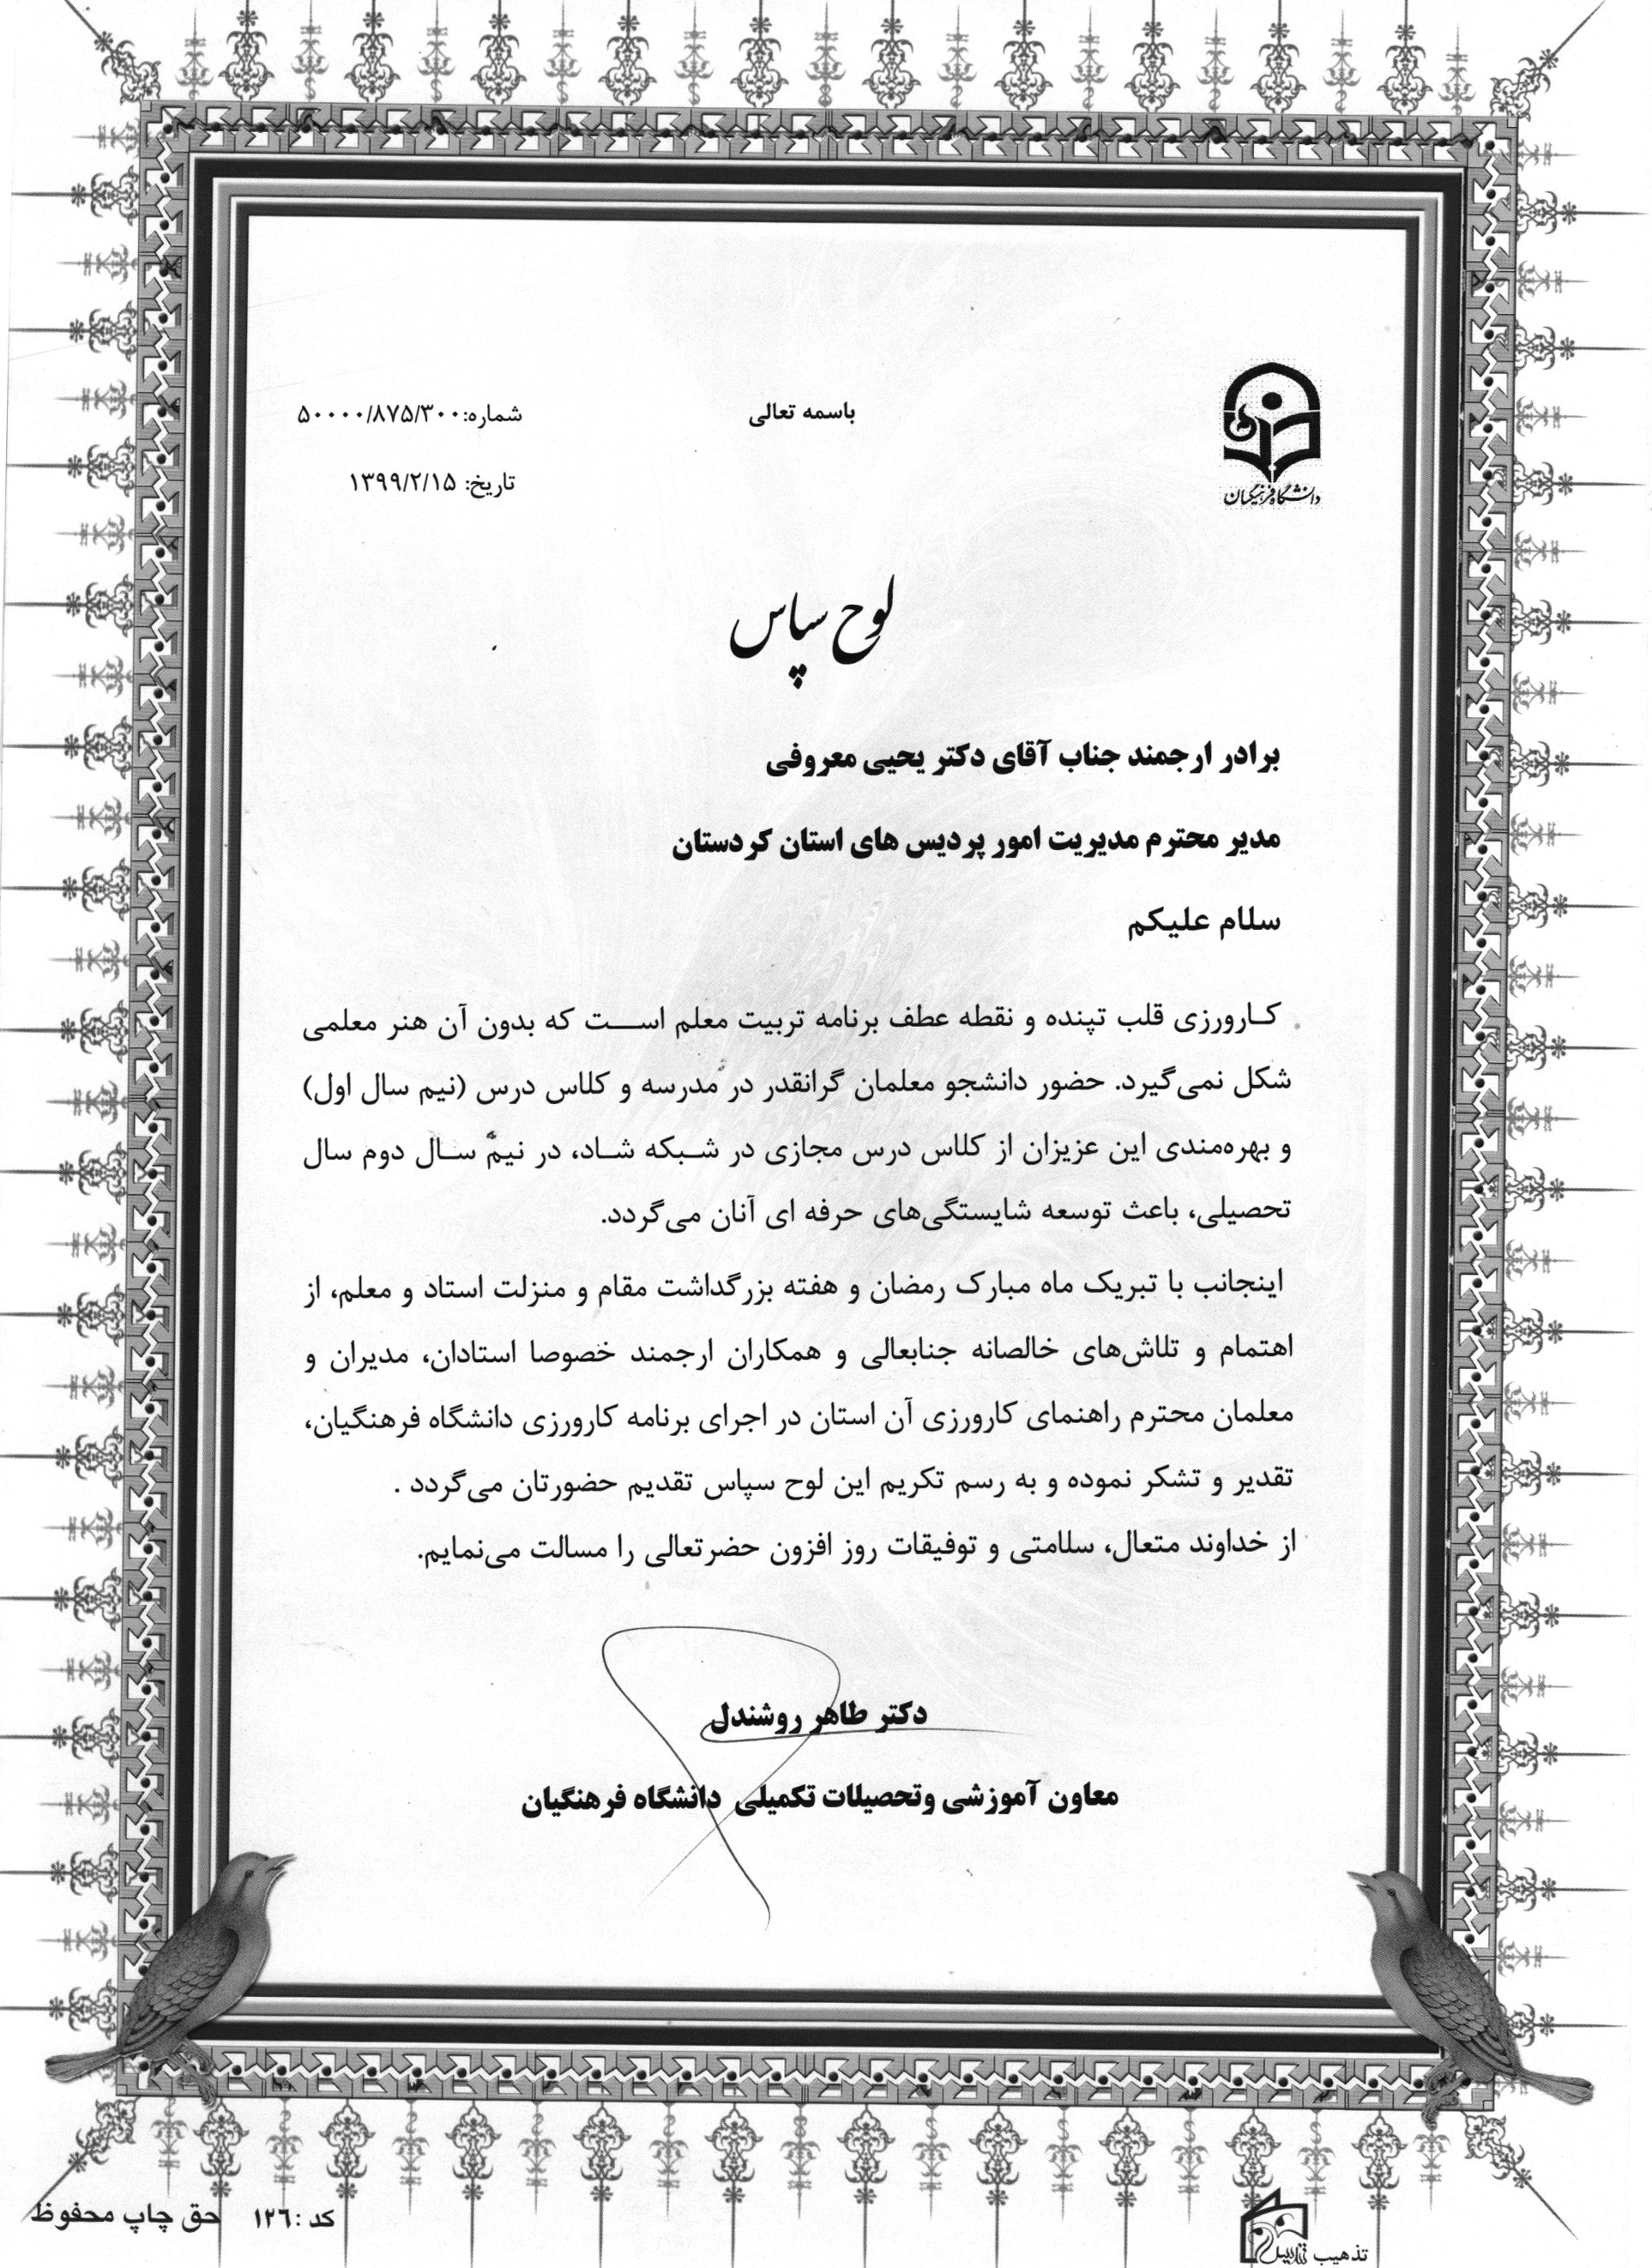 باسمه تعالی
شماره:۵۰۰۰۰/۸۷۵/۳۰۰
تاریخ: ۱۳۹۹/۲/۱۵
دانشگاه فرهنگیان
لوح سپاس
برادر ارجمند جناب آقای دکتر یحیی معروفی
مدیر محترم مدیریت امور پردیس های استان کردستان
سلام علیکم
کارورزی قلب تپنده و نقطه عطف برنامه تربیت معلم است که بدون آن هنر معلمی
شکل نمی‌گیرد. حضور دانشجو معلمان گرانقدر در مدرسه و کلاس درس (نیم سال اول)
و بهره‌مندی این عزیزان از کلاس درس مجازی در شبکه شاد، در نیم سال دوم سال
تحصیلی، باعث توسعه شایستگی‌های حرفه ای آنان می‌گردد.
اینجانب با تبریک ماه مبارک رمضان و هفته بزرگداشت مقام و منزلت استاد و معلم، از
اهتمام و تلاش‌های خالصانه جنابعالی و همکاران ارجمند خصوصا استادان، مدیران و
معلمان محترم راهنمای کارورزی آن استان در اجرای برنامه کارورزی دانشگاه فرهنگیان،
تقدیر و تشکر نموده و به رسم تکریم این لوح سپاس تقدیم حضورتان می‌گردد .
از خداوند متعال، سلامتی و توفیقات روز افزون حضرتعالی را مسالت می‌نمایم.
دکتر طاهر روشندل
معاون آموزشی وتحصیلات تکمیلی دانشگاه فرهنگیان
کد :۱۲۶ حق چاپ محفوظ
تذهیب